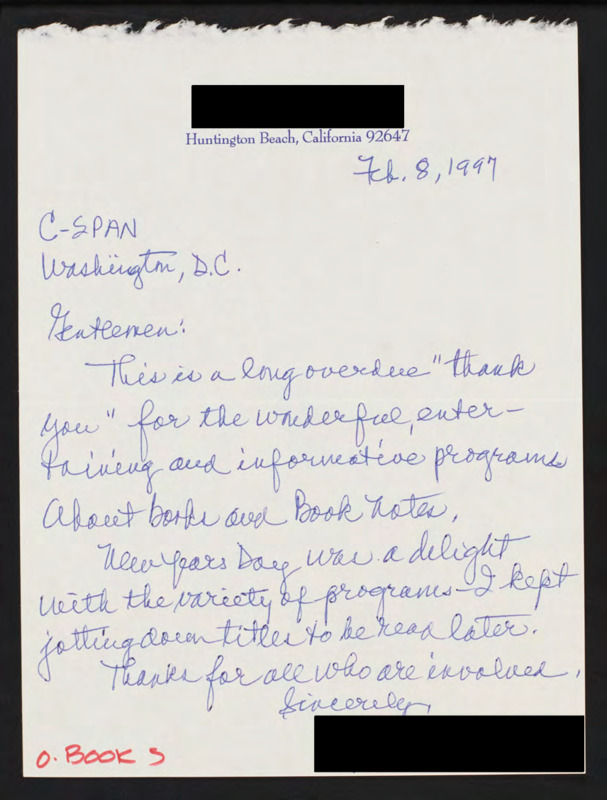 Huntington Beach, California 92647
Feb. 8, 1997
C-SPAN
Washington, D.C.
Gentlemen:
This is a long overdue "thank
you" for the wonderful, enter-
taining and informative programs
About books and Book Notes.
New Years Day was a delight
with the variety of programs - I kept
jotting down titles to be read later.
Thanks for all who are involved.
Sincerely,
O. BOOK S